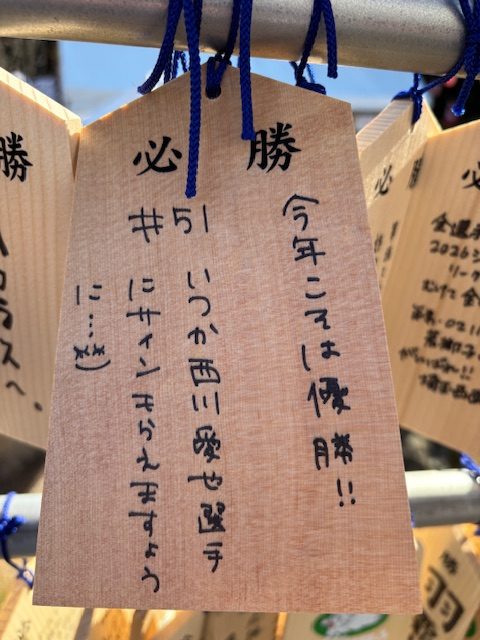 必勝
今年こそは優勝!!
#51 いつか西川愛也選手
にサインもらえますよう
に…
勝
クラスへ。
必勝
必
全選手
2026シ
リーグ
むけて全
埼玉西武